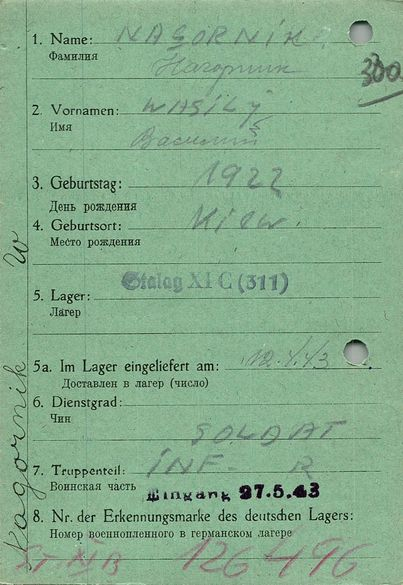 1. Name: NAGORNIK
Фамилия Нагорник
300
2. Vornamen: WASILIJ
Имя Василий
3. Geburtstag: 1922
День рождения
4. Geburtsort: Kiew.
Место рождения
Stalag XI C (311)
5. Lager:
Лагерь
5a. Im Lager eingeliefert am: 12.4.43
Доставлен в лагерь (число)
6. Dienstgrad:
Чин SOLDAT
7. Truppenteil: INF- R
Воинская часть Eingang 27.5.43
8. Nr. der Erkennungsmarke des deutschen Lagers:
Номер военнопленного в германском лагере
126496
Nagornik W